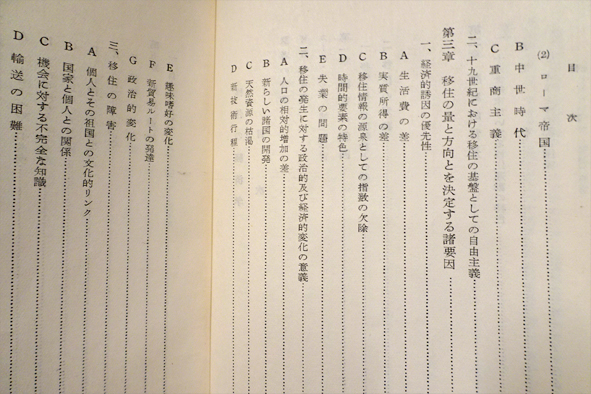 目次
(2) ローマ帝国
B 中世時代
C 重商主義
二、十九世紀における移住の基盤としての自由主義
第三章 移住の量と方向とを決定する諸要因
一、経済的誘因の優先性
A 生活費の差
B 実質所得の差
C 移住情報の源泉としての指数の欠除
D 時間的要素の特色
E 失業の問題
二、移住の発生に対する政治的及び経済的変化の意義
A 人口の相対的増加の差
B 新らしい諸国の開発
C 天然資源の枯渇
D 新技術
E 趣味嗜好の変化
F 新貿易ルートの発達
G 政治的変化
三、移住の障害
A 個人とその祖国との文化的リンク
B 国家と個人との関係
C 機会に対する不完全な知識
D 輸送の困難